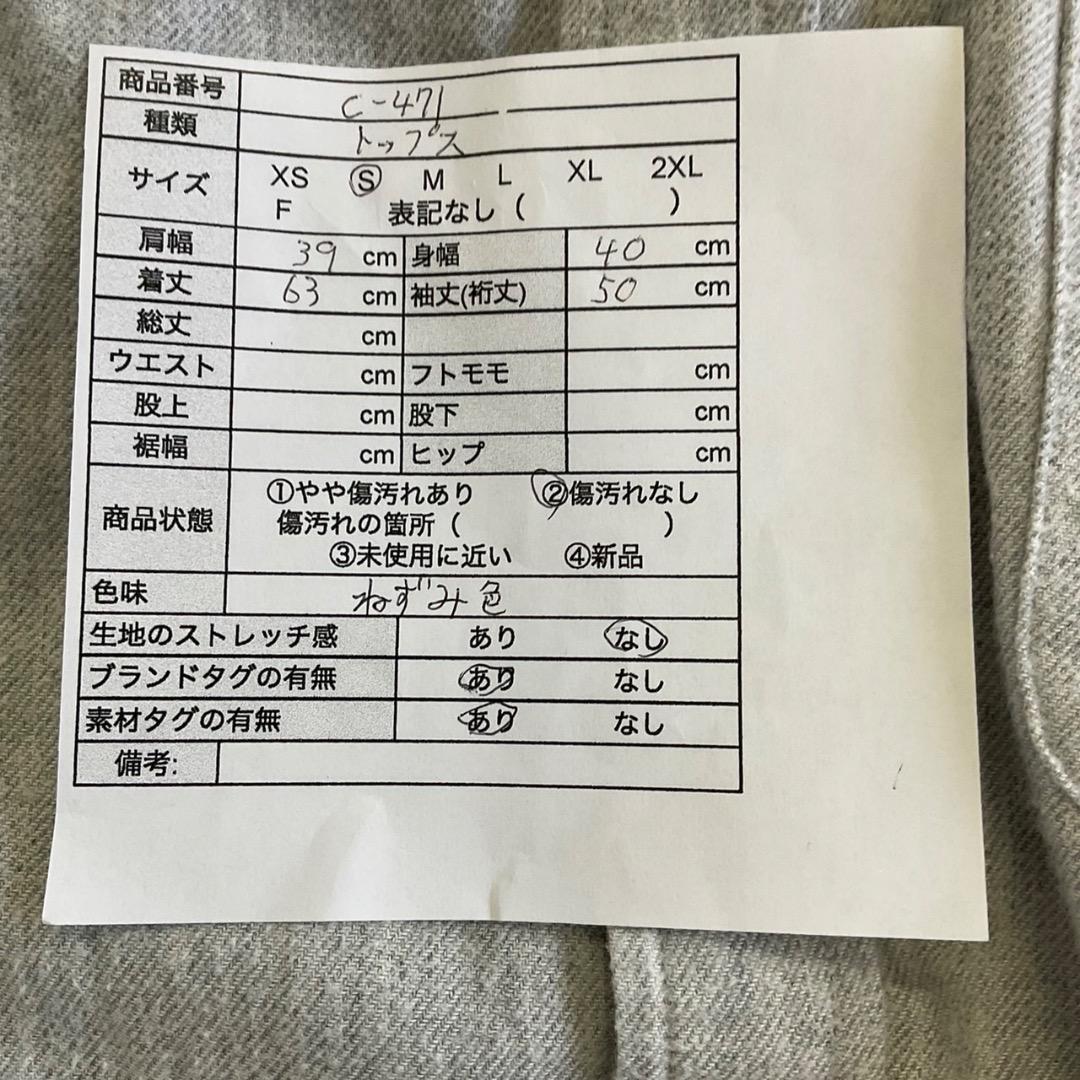 商品番号 C-471
種類 トップス
サイズ XS S M L XL 2XL
F 表記なし ( )
肩幅 39 cm 身幅 40 cm
着丈 63 cm 袖丈(裄丈) 50 cm
総丈 cm
ウエスト cm フトモモ cm
股上 cm 股下 cm
裾幅 cm ヒップ cm
商品状態 ①やや傷汚れあり ②傷汚れなし
傷汚れの箇所 ( )
③未使用に近い ④新品
色味 ねずみ色
生地のストレッチ感 あり なし
ブランドタグの有無 あり なし
素材タグの有無 あり なし
備考: